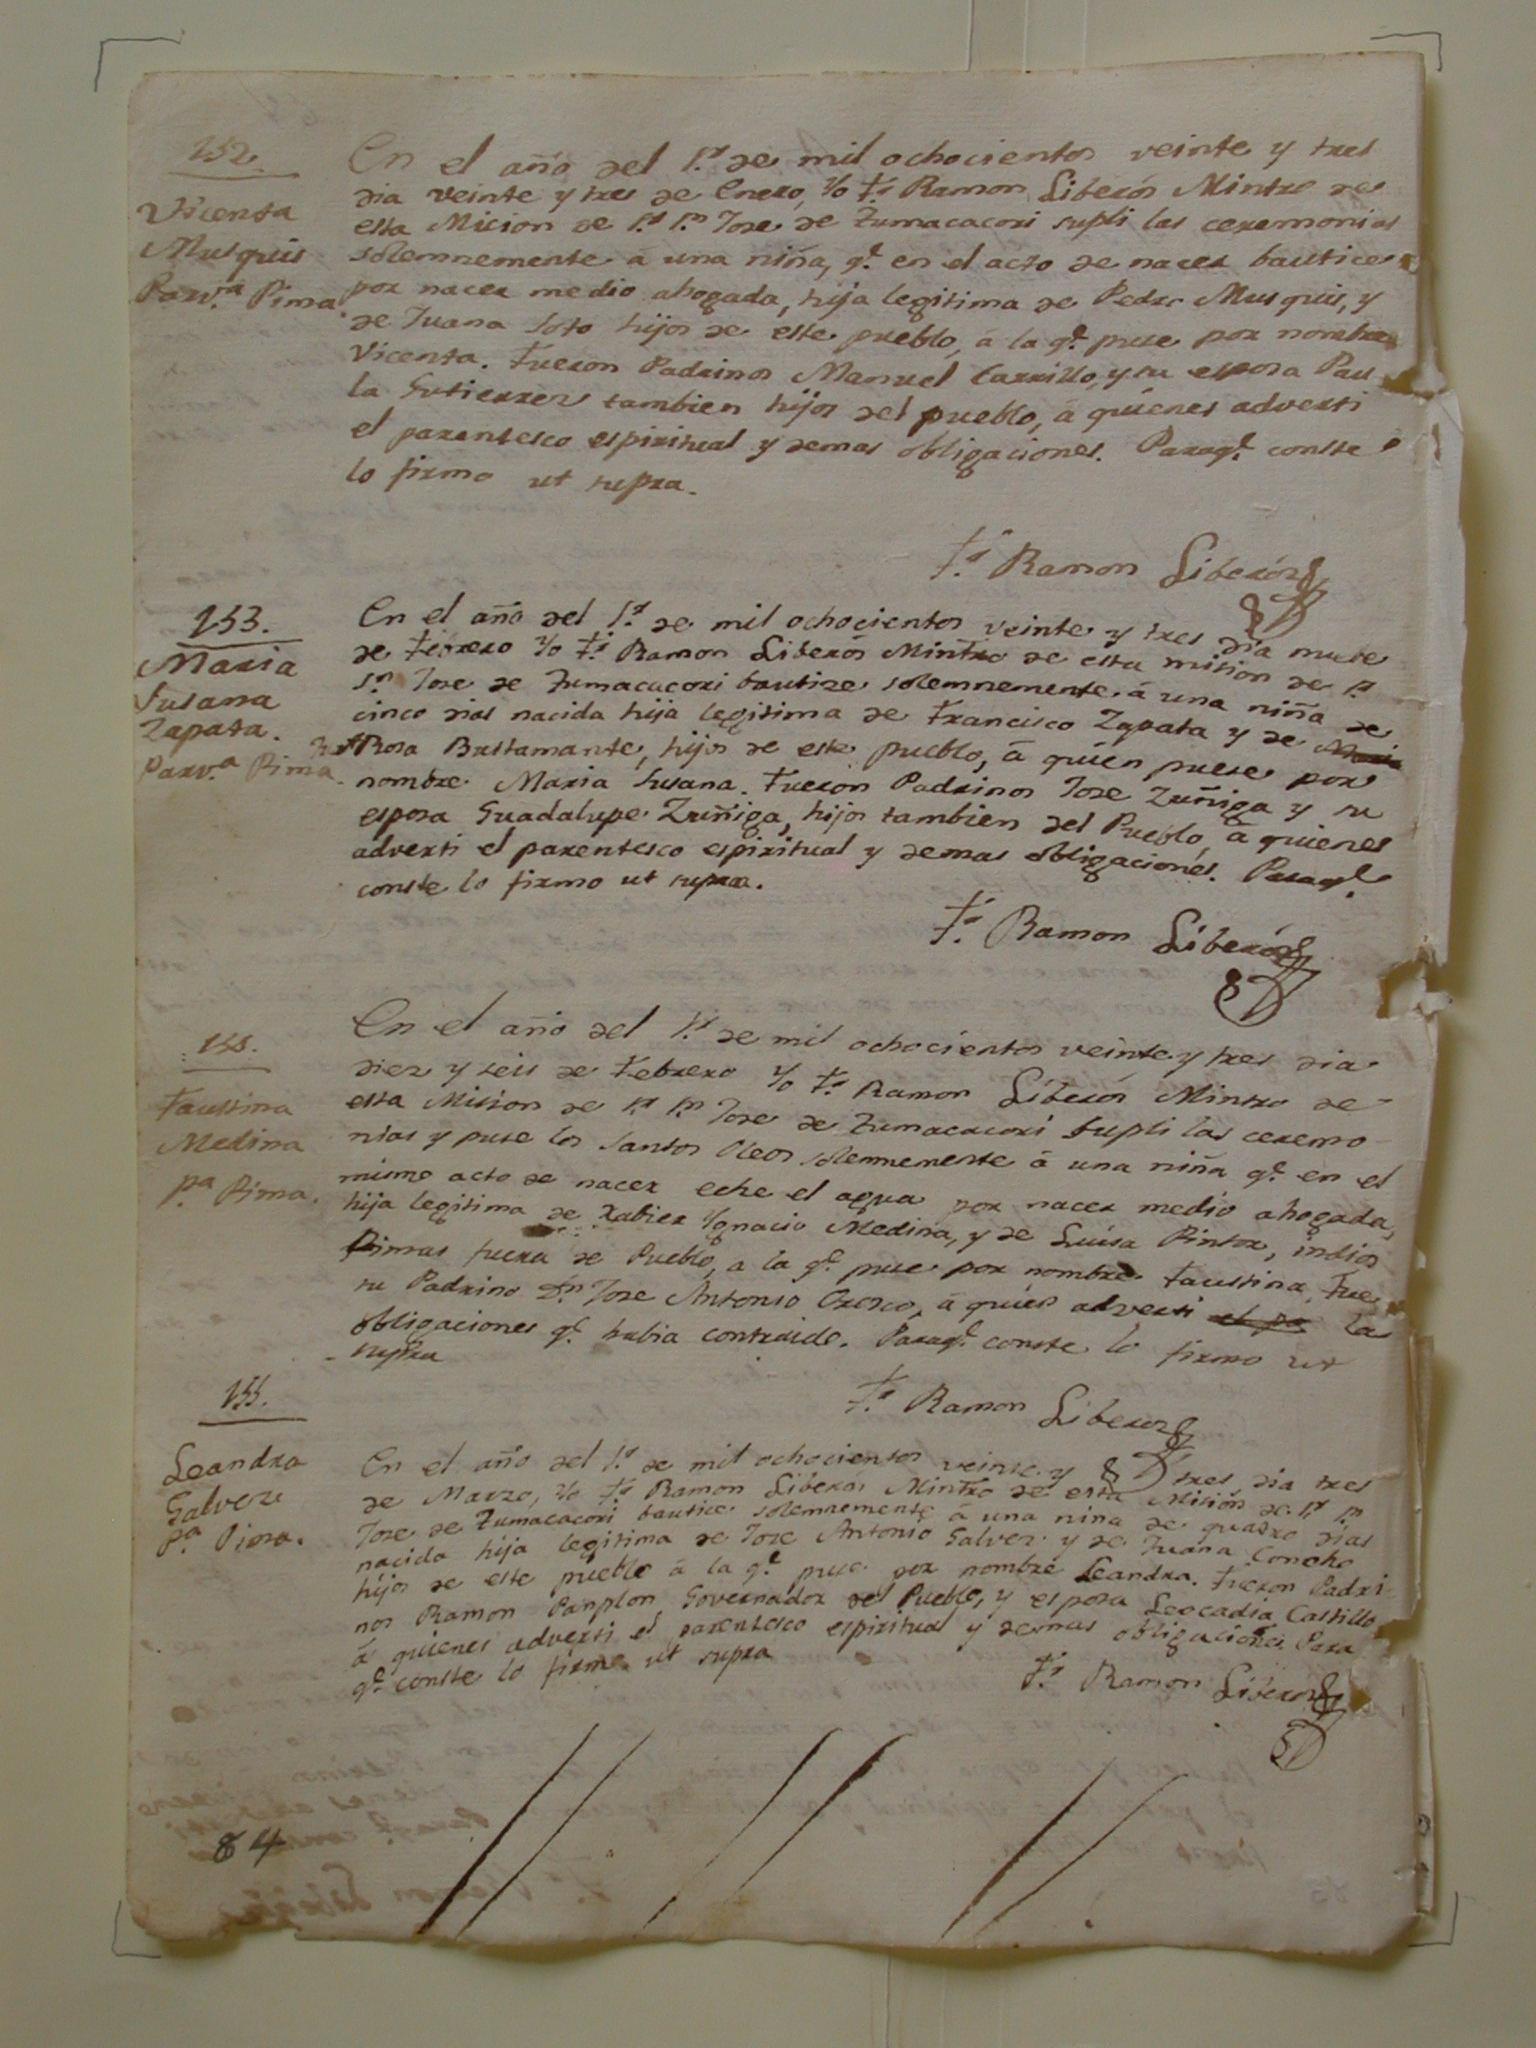 152.
Vicenta
Musquis
Parv.a Pima
En el año del S.r de mil ochocientos veinte y tres
dia veinte y tres de Enero, Yo Fr. Ramon Liberós Mintro de
esta Mision de S.r S.n Jose de Tumacacori supli las ceremonias
solemnemente á una niña, q.e en el acto de nacer bautice
por nacer medio ahogada, hija legitima de Pedro Musquis, y
de Juana Soto hijos de este pueblo, á la q.e puse por nombre
Vicenta. Fueron Padrinos Manuel Carrillo, y su esposa Pau
la Gutierrez tambien hijos del pueblo, á quienes adverti
el parentesco espiritual y demas obligaciones. Paraq.e conste
lo firmo ut supra.
Fr. Ramon Liberós
153.
Maria
Susana
Zapata.
Parv.a Pima.
En el año del S.r de mil ochocientos veinte y tres dia nueve
de Febrero Yo Fr. Ramon Liberós Mintro de esta mision de S.r
S.n Jose de Tumacacori bautize solemnemente á una niña de
cinco dias nacida hija legitima de Francisco Zapata y de
Rosa Bustamante, hijos de este pueblo, á quien puse por
nombre Maria Susana. Fueron Padrinos Jose Zuñiga y su
esposa Guadalupe Zuñiga, hijos tambien del Pueblo, á quienes
adverti el parentesco espiritual y demas obligaciones. Paraq.e
conste lo firmo ut supra.
Fr. Ramon Liberós
154.
Faustina
Medina
p.a Pima.
En el año del S.r de mil ochocientos veinte y tres dia
diez y seis de Febrero Yo Fr. Ramon Liberós Mintro de
esta Mision de S.r S.n Jose de Tumacacori supli las ceremo
nias y puse los Santos Oleos solemnemente á una niña q.e en el
mismo acto de nacer eche el agua por nacer medio ahogada,
hija legitima de Xabier Ygnacio Medina, y de Luisa Pintor, indios
Pimas fuera de Pueblo, a la q.e puse por nombre Faustina. Fue
su Padrino D.n Jose Antonio Orosco, á quien adverti el pa las
obligaciones q.e habia contraido. Paraq.e conste lo firmo ut
supra
Fr. Ramon Liberós
155.
Leandra
Galvez
p.a Pima.
En el año del S.r de mil ochocientos veinte y tres dia tres
de Marzo, Yo Fr. Ramon Liberós Mintro de esta Misión de S.r S.n
Jose de Tumacacori bautice solemnemente á una nina de quatro dias
nacida hija legitima de Jose Antonio Galvez y de Juana Concho
hijos de este pueblo á la q.e puse por nombre Leandra. Fueron Padri
nos Ramon Panplon Governador del Pueblo, y esposa Leocadia Castillo
á quienes adverti el parentesco espiritual y demas obligaciones. Para
q.e conste lo firmo ut supra
Fr. Ramon Liberós
84